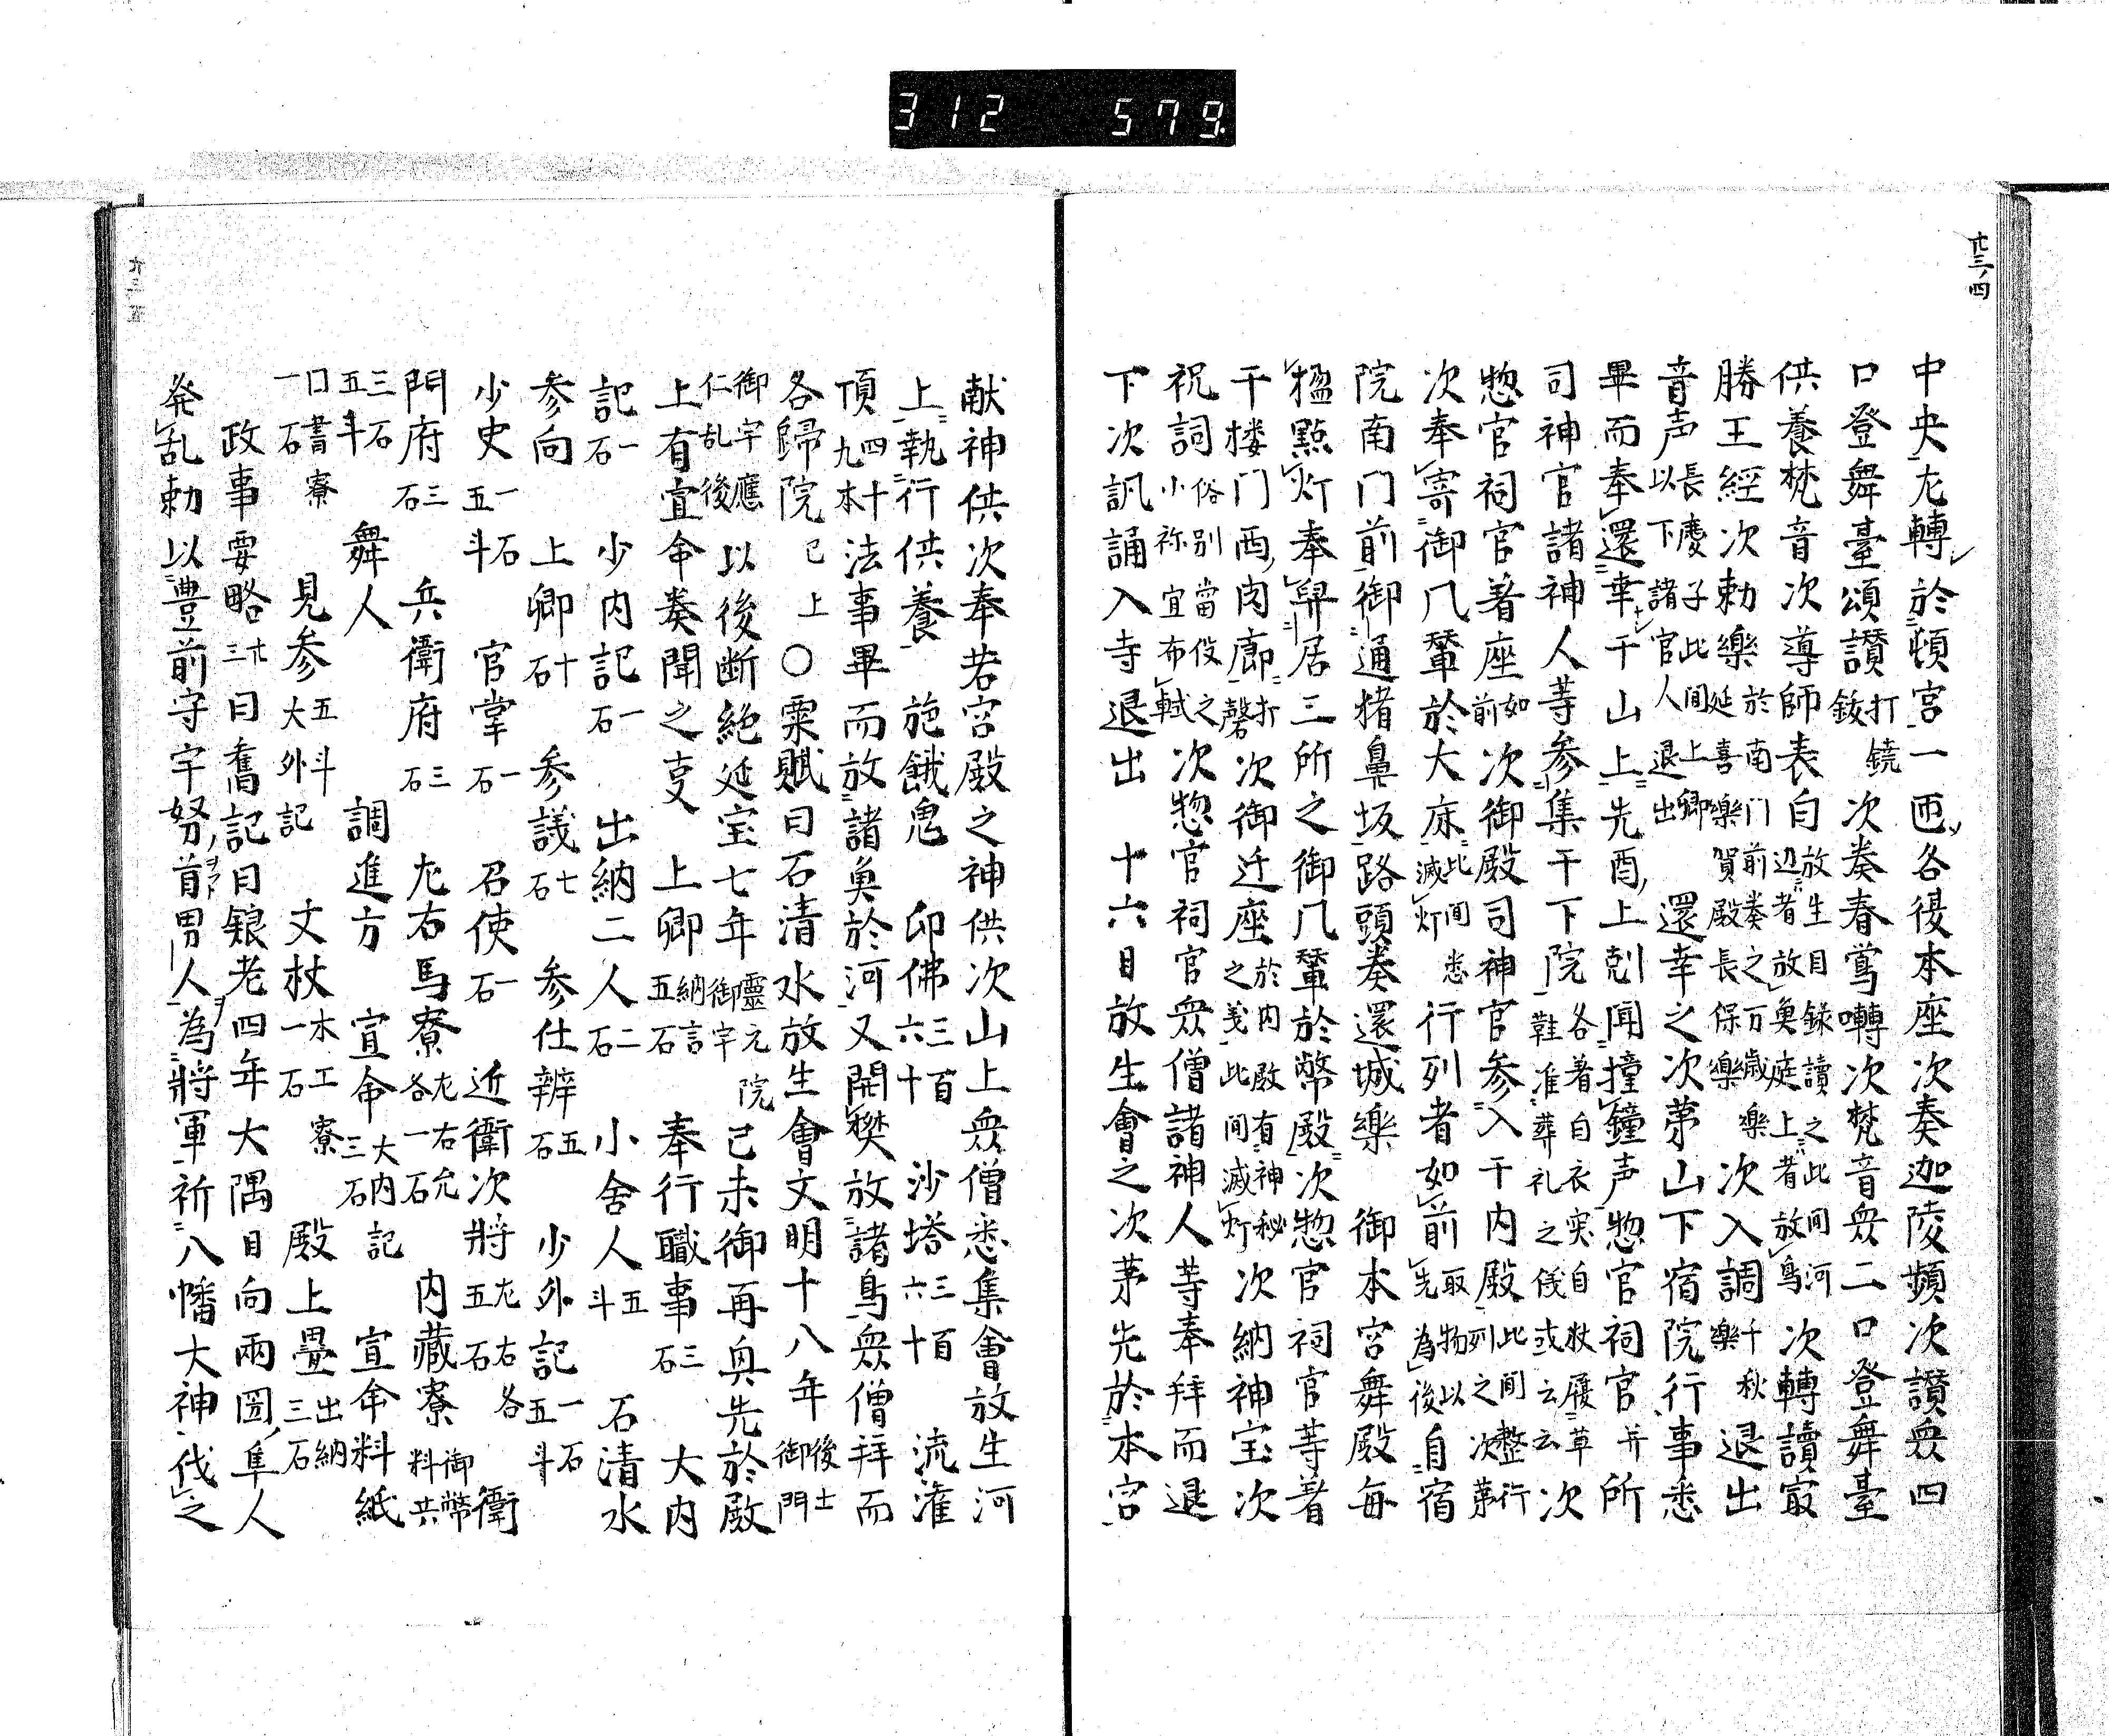 312 579.
廿三ノ四
中央左轉於頓宮一匝各復本座次奏迦陵頻次讃衆四
口登舞臺頌讃打鐃鈸次奏春鶯囀次梵音衆二口登舞臺
供養梵音次導師表白放生目録讀之此間河辺者放魚庭上者放鳥次轉讀㝡
勝王經次勅樂於南门前奏之万歳樂延喜樂賀殿長保樂次入調千秋樂退出
音声長慶子此間上卿以下諸官人退出還幸之次第山下宿院行事悉
畢而奉還幸于山上先酉上剋聞撞鐘声惣官祠官并所
司神官諸神人等参集于下院各著自衣実自杖履草鞋准葬礼之儀或云云次
惣官祠官著座如前次御殿司神官参入于内殿此間整行列之次第
次奉寄御几輦於大床此間悉滅灯行列者如前取物以先為後自宿
院南门前御通猪鼻坂路頭奏還城樂御本宮舞殿毎
楹點灯奉舁居三所之御几輦於幣殿次惣官祠官等著
干楼门西肉廊打磬次御迁座於内殿有神秘之義此間滅灯次納神宝次
祝詞俗別當役之小祢宜布軾次惣官祠官衆僧諸神人等奉拜而退
下次訊誦入寺退出十六日放生會之次第先於本宮
献神供次奉若宮殿之神供次山上衆僧悉集會放生河
上執行供養施餓鬼印佛三百六十沙塔三百六十流潅
頂四十九本法事畢而放諸魚於河又開樊放諸鳥衆僧拜而
各歸院已上〇粟賦曰石清水放生會文明十八年後土御門
御宇應仁乱後以後断絶延宝七年靈元院御宇己未御再興先於殿
上有宣命奏聞之叓上卿納言五石奉行職事三石大内
記一石少内記一石出納二人二石小舎人五斗石清水
参向上卿十石参議七石参仕辨五石少外記一石五斗
少史一石五斗官掌一石召使一石近衛次將左右各五石衛
門府三石兵衛府三石左右馬寮左右允各一石内藏寮御幣料共
三石五斗舞人調進方宣命大内記三石宣命料紙
口書寮一石見参五斗大外記文杖木工寮一石殿上疊出納三石
政事要略廿三曰舊記曰養老四年大隅日向兩国隼人
発乱勅以豊前守宇努首男人為將軍祈八幡大神伐之